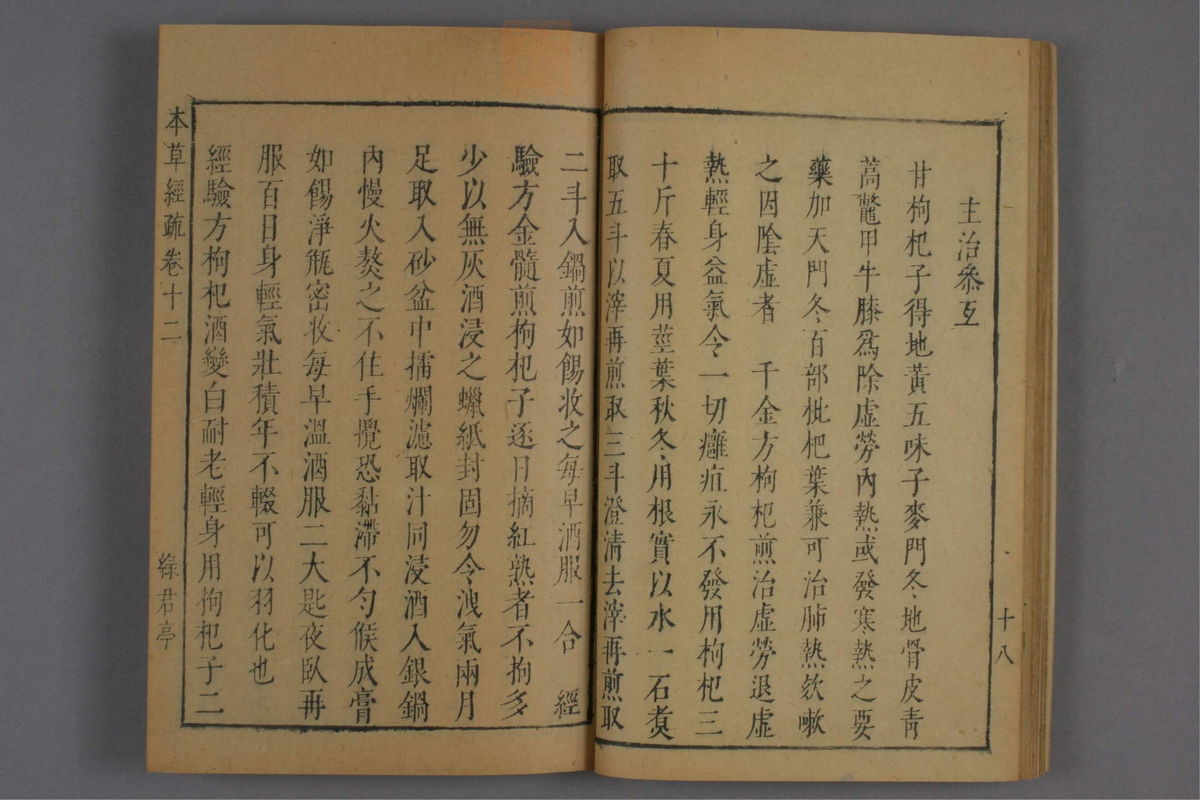 十八
主治叅互
甘枸杞子得地黃五味子麥門冬地骨皮靑
蒿鼈甲牛膝爲除虛勞內熱或發寒熱之要
藥加天門冬百部枇杷葉兼可治肺熱欬嗽
之因陰虛者　千金方枸杞煎治虛勞退虛
熱輕身益氣令一切癰疽永不發用枸杞三
十斤春夏用莖葉秋冬用根實以水一石煑
取五斗以滓再煎取三斗澄清去滓再煎取
二斗入鍋煎如餳收之每早酒服一合　經
驗方金髓煎枸杞子逐日摘紅熟者不拘多
少以無灰酒浸之蠟紙封固勿令洩氣兩月
足取入砂盆中擂爛濾取汁同浸酒入銀鍋
內慢火熬之不住手攪恐黏滯不勻候成膏
如餳淨甁密收每早溫酒服二大匙夜臥再
服百日身輕氣壯積年不輟可以羽化也
經驗方枸杞酒變白耐老輕身用枸杞子二
本草經疏卷十二
綠君亭